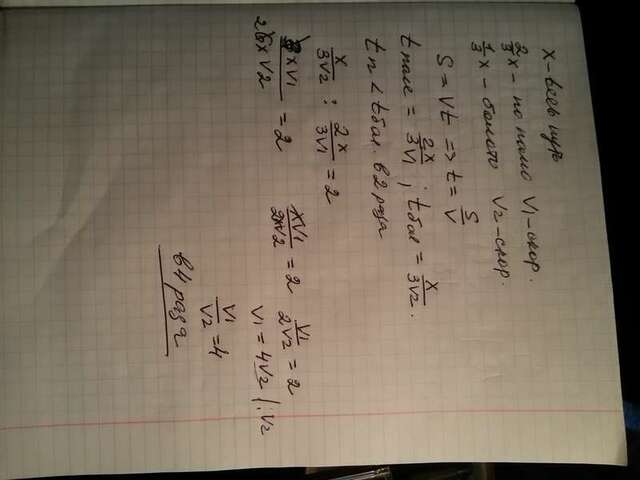 x - весь путь
2/3 x - по полю V1 - скор.
1/3 x - болото V2 - скор.
S = Vt => t = S/V
t поле = 2x/3V1 ; t бол = x/3V2.
t п < t бол. в 2 раза
x/3V2 : 2x/3V1 = 2
xV1/2xV2 = 2
V1/2V2 = 2
V1 = 4V2 | : V2
V1/V2 = 4
в 4 раза